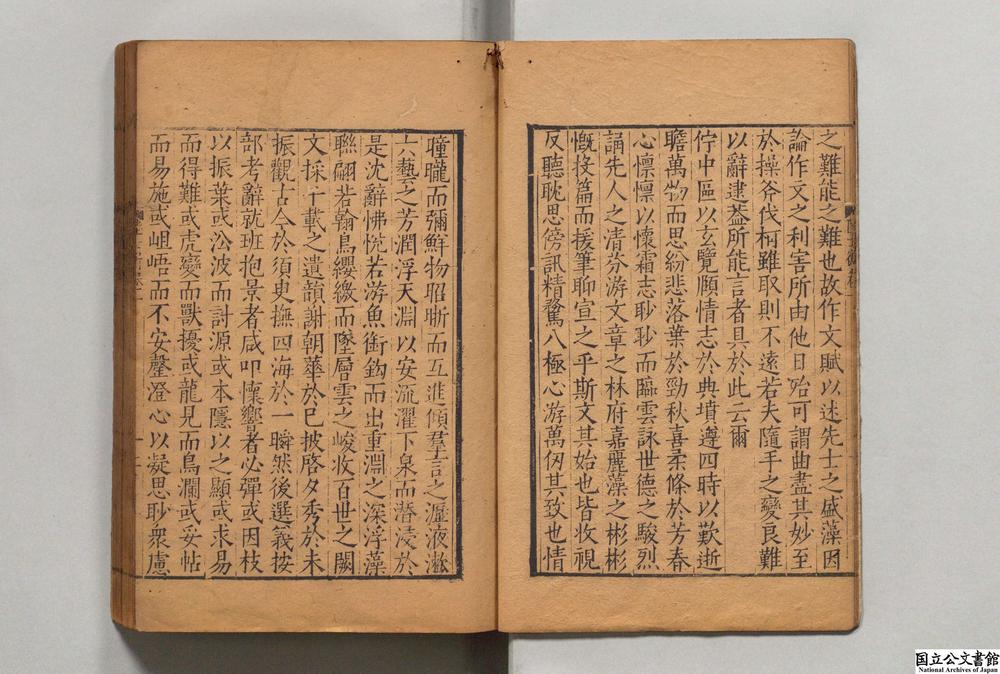 之難能之難也故作文賦以述先士之盛藻因
論作文之利害所由他日殆可謂曲盡其妙至
於操斧伐柯雖取則不遠若夫隨手之變良難
以辭逮葢所能言者具於此云爾
佇中區以玄覽頤情志於典墳遵四時以歎逝
瞻萬物而思紛悲落葉於勁秋喜柔條於芳春
心懍懍以懷霜志眇眇而臨雲詠世德之駿烈
誦先人之清芬游文章之林府嘉麗藻之彬彬
慨投篇而援筆聊宣之乎斯文其始也皆收視
反聽耽思傍訊精騖八極心游萬仞其致也情
曈曨而彌鮮物昭晣而互進傾羣言之瀝液漱
六藝之芳潤浮天淵以安流濯下泉而潛浸於
是沈辭怫悅若游魚銜鉤而出重淵之深浮藻
聯翩若翰鳥纓繳而墜層雲之峻收百世之闕
文採千載之遺韻謝朝華於已披啓夕秀於未
振觀古今於須臾撫四海於一瞬然後選義按
部考辭就班抱景者咸叩懷響者必彈或因枝
以振葉或沿波而討源或本隱以之顯或求易
而得難或虎變而獸擾或龍見而鳥瀾或妥帖
而易施或岨峿而不安罄澄心以凝思眇衆慮
国立公文書館
National Archives of Japan